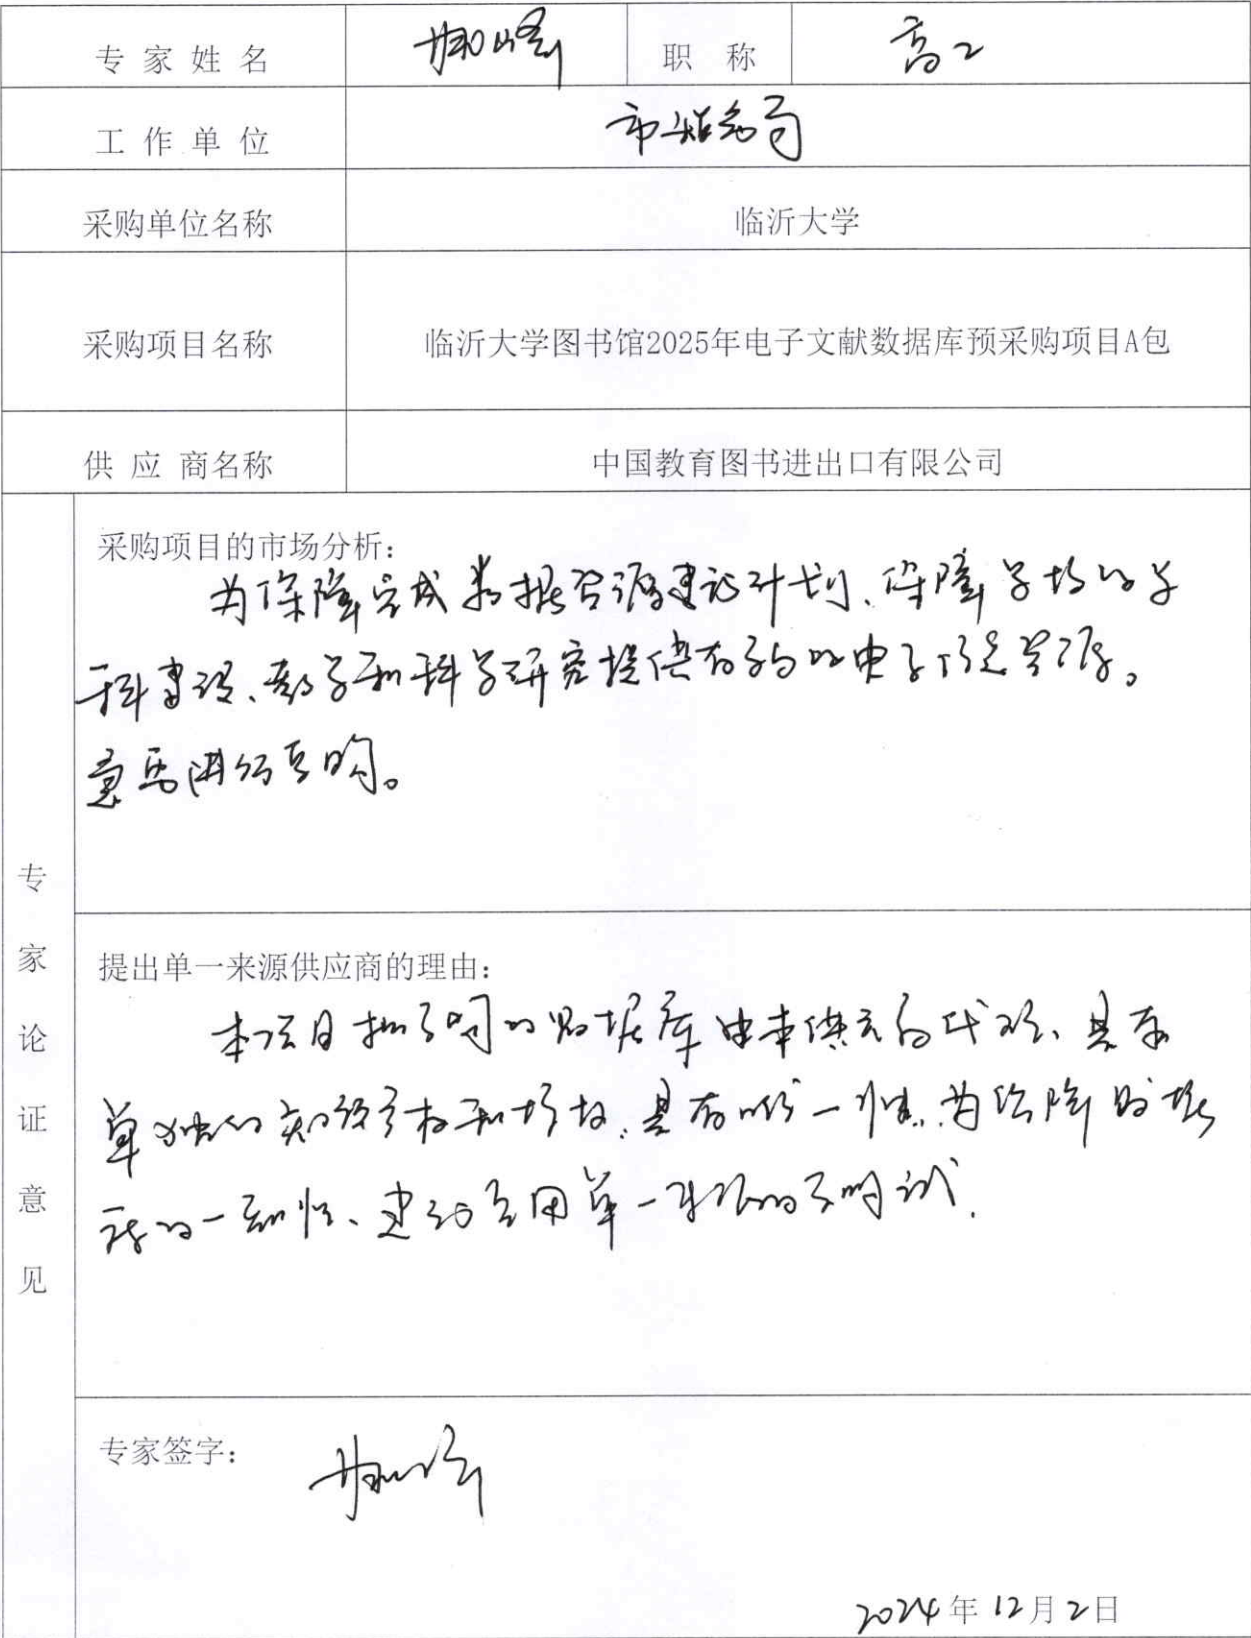 专家姓名 职称 高工
工作单位
采购单位名称 临沂大学
采购项目名称 临沂大学图书馆2025年电子文献数据库预采购项目A包
供应商名称 中国教育图书进出口有限公司
专家论证意见
采购项目的市场分析:
为保障完成数据资源建设计划、保障学校的学
科建设、教学和科学研究提供有的电子资源。
进行采购。
提出单一来源供应商的理由:
本项目采购的数据库由本供应商代理、具有
单独的知识产权和,具有唯一性,为保障数据
的一致性、建议采用单一来源的采购
专家签字:
2024年12月2日